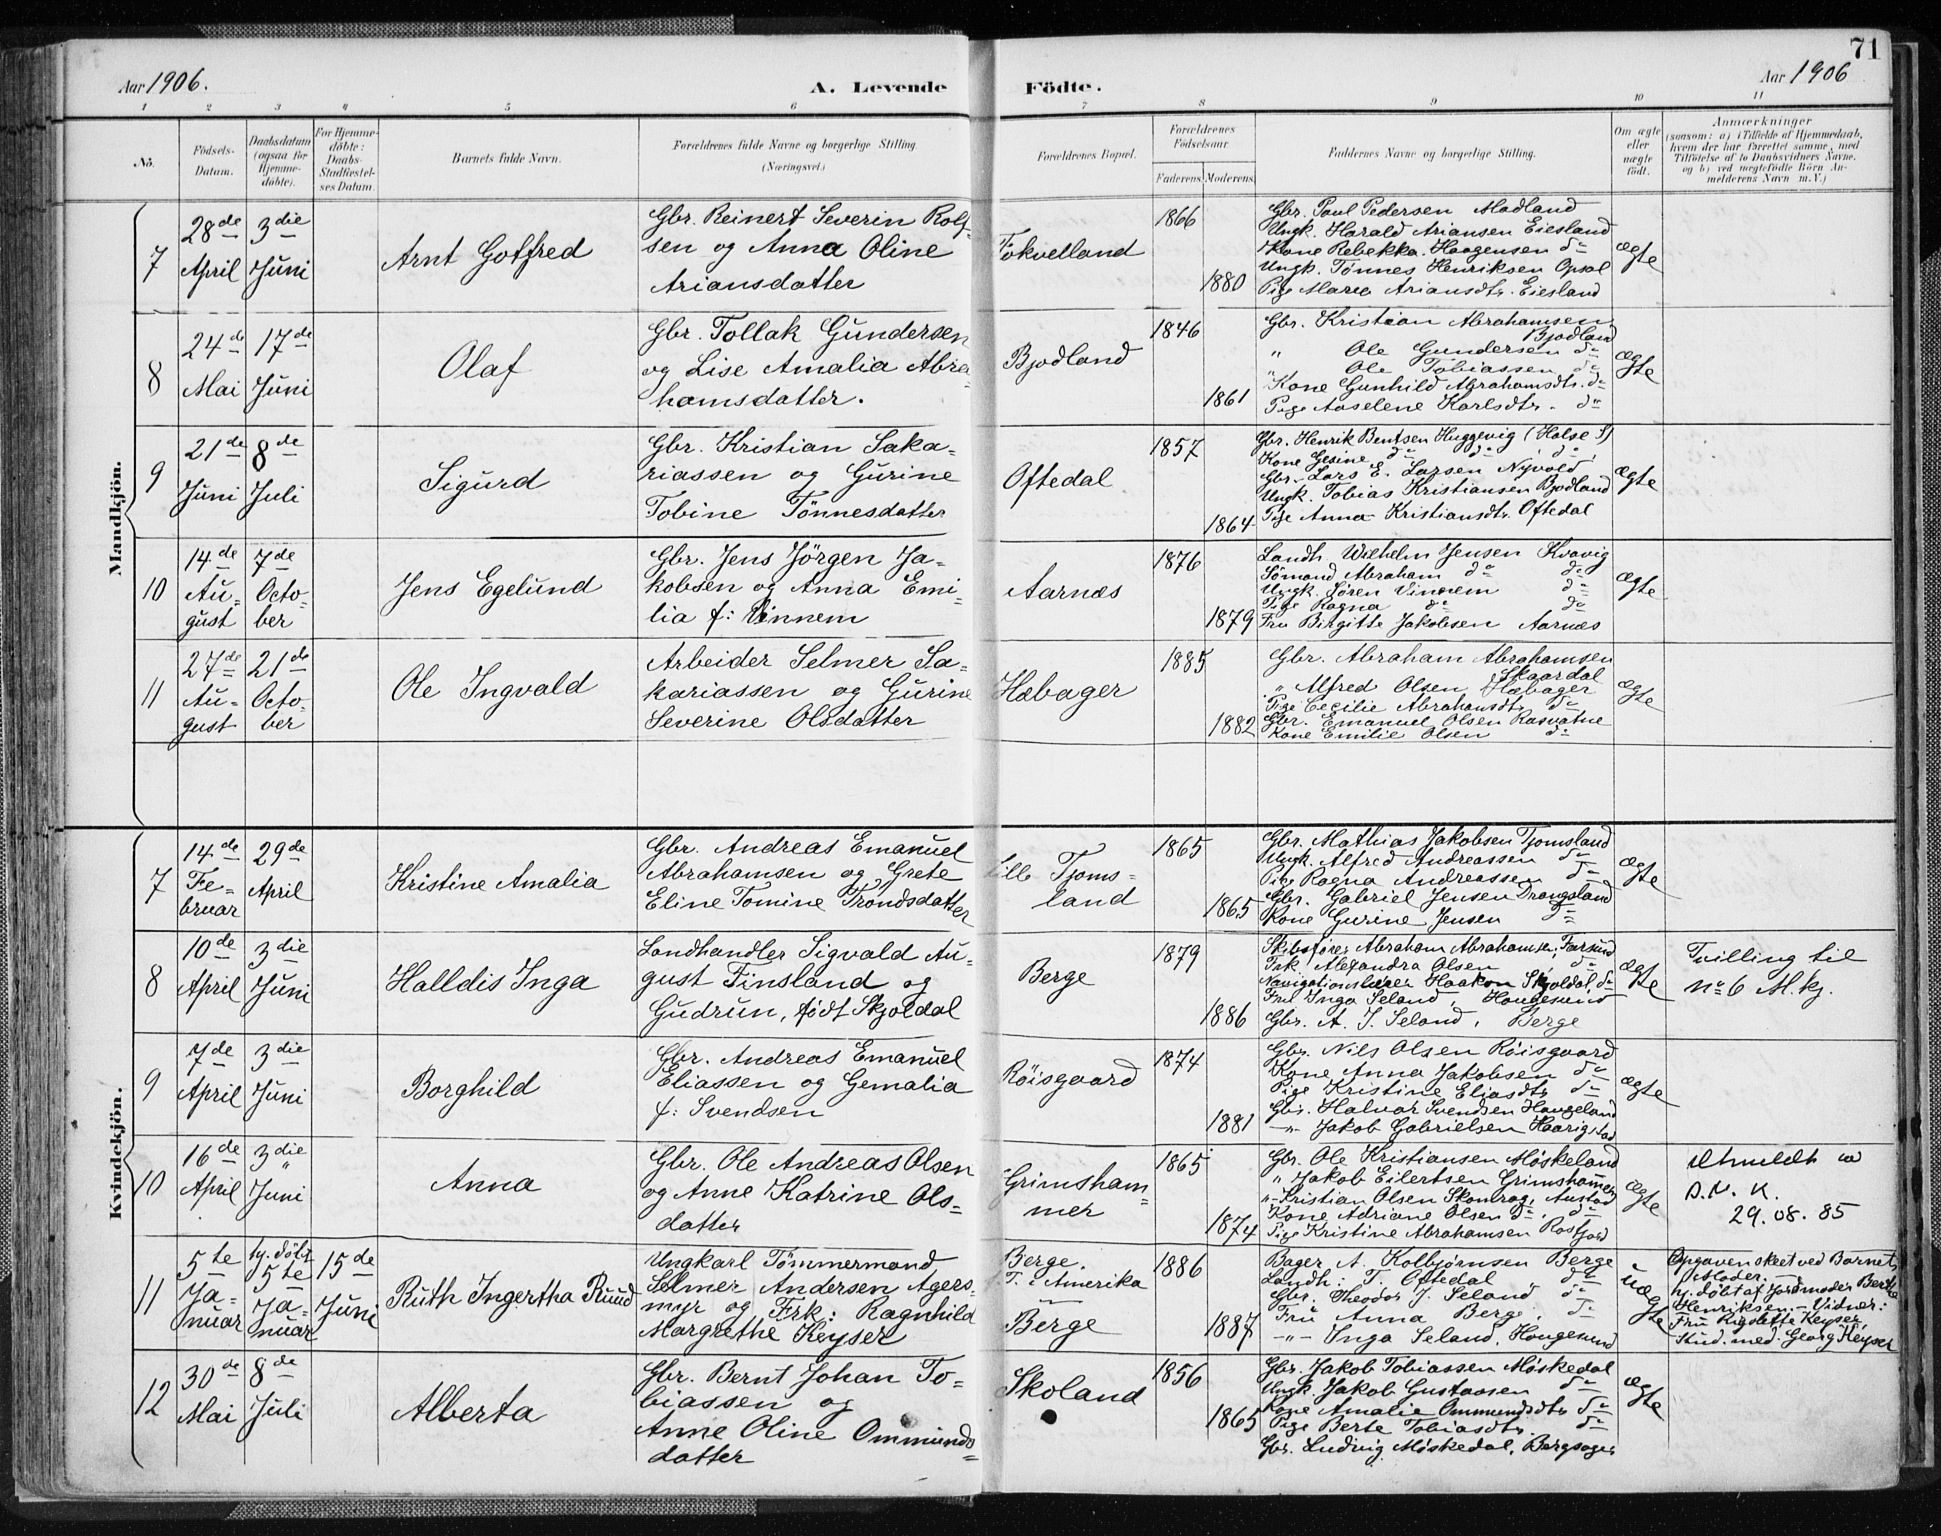 71
Aar 1906.
A. Levende
Födte.
Aar 1906
1 2 3 4 5 6 7 8 9 10 11
No.
Födsels-
Datum.
Daabsdatum
(ogsaa for
Hjemme-
döbte).
For Hjemme-
döbte:
Daabs-
Stadfæstel-
ses Datum.
Barnets fulde Navn.
Forældrenes fulde Navne og borgerlige Stilling.
(Næringsvei.)
Forældrenes Bopæl.
Forældrenes
Födselsaar.
Faderens.
Moderens.
Faddernes Navne og borgerlige Stilling.
Om ægte
eller
uægte
födt.
Anmærkninger
(saasom: a) i Tilfælde af Hjemmedaab,
hvem der har forrettet samme, med
Tilföielse af to Daabsvidners Navne.
og b) ved uægtefödte Börn An-
melderens Navn m. V.)
Mandkjön.
7
28de
April
3die
Juni
Arnt Gotfred
Gbr. Reinert Severin Rolf-
sen og Anna Oline
Ariansdatter
Fokvelland
1866
1880
Gbr. Paul Pedersen Madland
Ungk. Harald Ariansen Eiesland
Kone Rebekka Haagensen do
Ungk. Tönnes Henriksen Opsal
Pige Marie Ariansdtr. Eiesland
ægte
8
24de
Mai
17de
Juni
Olaf
Gbr. Tollak Gundersen
og Lise Amalia Abra-
hamsdatter.
Bjodland
1846
1861
Gbr. Kristian Abrahamsen
Bjodland
" Ole Gundersen do
" Ole Tobiassen do
Kone Gunhild Abrahamsdtr. do
Pige Aaselene Karlsdtr. do
ægte
9
21de
Juni
8de
Juli
Sigurd
Gbr. Kristian Saka-
riassen og Gurine
Tobine Tönnesdatter
Oftedal
1857
1864
Gbr. Henrik Bentsen Huggevig (Halse S)
Kone Gesine do do do
Gbr. Lars E. Larsen Nyvold
Ungk. Tobias Kristiansen Bjodland
Pige Anna Kristiansdtr. Oftedal
ægte
10
14de
Au-
gust
7de
Octo-
ber
Jens Egelund
Gbr. Jens Jörgen Ja-
kobsen og Anna Emi-
lia f: Vinnem
Aarnæs
1876
1879
Landh. Wilhelm Jensen Kvavig
Sömand Abraham do do
Ungk. Sören Vinnem do
Pige Ragna do do
Fru Birgitte Jakobsen Aarnæs
ægte
11
27de
Au-
gust
21de
Octo-
ber
Ole Ingvald
Arbeider Selmer Sa-
kariassen og Gurine
Severine Olsdatter
Hæbager
1885
1882
Gbr. Abraham Abrahamsen
Skaardal
" Alfred Olsen Hæbager
Pige Cecilie Abrahamsdtr. do
Gbr. Emanuel Olsen Rasvatne
Kone Emilie Olsen do
ægte
Kvindekjön.
7
14de
Fe-
bruar
29de
April
Kristine Amalia
Gbr. Andreas Emanuel
Abrahamsen og Grete
Eline Tomine Trondsdatter
Lille Tjoms-
land
1865
1865
Gbr. Mathias Jakobsen Tjomsland
Ungk. Alfred Andreassen do
Pige Ragna Andreassen do
Gbr. Gabriel Jensen Drangsland
Kone Gurine Jensen do
ægte
8
10de
April
3die
Juni
Halldis Inga
Landhandler Sigvald Au-
gust Finsland og
Gudrun, födt Skjoldal
Berge
1879
1886
Skibsförer Abraham Abrahamsen, Farsund
Frk. Alexandra Olsen, do
Navigationslærer Haakon Skjoldal, do
Fru Inga Seland, Haugesund
Gbr. A. J. Seland, Berge
ægte
Tvilling til
no 6 M.kj.
9
7de
April
3die
Juni
Borghild
Gbr. Andreas Emanuel
Eliassen og Gemalia
f: Svendsen
Röisgaard
1874
1881
Gbr. Nils Olsen Röisgaard
Kone Anna Jakobsen do
Pige Kristine Eliasdtr do
Gbr. Halvar Svendsen Haugeland
-"- Jakob Gabrielsen Haarigstad
ægte
10
16de
April
3die
Juni
Anna
Gbr. Ole Andreas Olsen
og Anne Katrine Ols-
datter
Grimsham-
mer
1865
1874
Gbr. Ole Kristiansen Möskeland
" Jakob Eilertsen Grimshammer
" Kristian Olsen Skomrag, Austad
Kone Adriane Olsen do, do
Pige Kristine Abrahamsen Rosfjord
ægte
Utmeldt av
D.N.K.
29.08.85
11
5te
Ja-
nuar
hj. döbt
5te
Ja-
nuar
15de
Juni
Ruth Ingertha Ruud
Ungkarl Tömmermand
Selmer Andersen Agers-
myr og Frk: Ragnhild
Margrethe Keyser
Berge,
T. i Amerika
Berge
1886
1887
Bager A. Kolbjörnsen Berge
Landh: T. Oftedal do
Gbr. Theodor J. Seland do
Fru Anna Berge, do
-"- Inga Seland, Haugesund
uægte
Opgaven skeet ved Barnets
hj. döbt af Jordmoder Berthe
Henriksen. - Vidner:
Keyser,
Stud. med. Georg Keyser
12
30de
Mai
8de
Juli
Alberta
Gbr. Bernt Johan To-
biassen og
Anne Oline Ommunds-
datter
Skoland
1856
1865
Gbr. Jakob Tobiassen Möskedal
Ungk. Jakob Gustavsen do
Kone Amalie Ommundsdtr do
Pige Berte Tobiasdtr. do
Gbr. Ludvig Möskedal, Bergsager
ægte